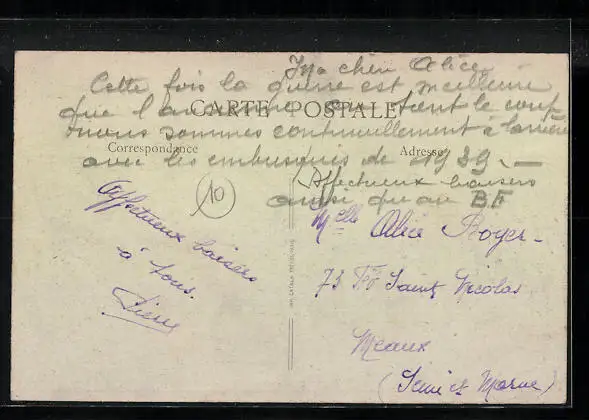 Ma chère Alice
Cette fois la guerre est meilleure
que l'ancienne on tient le coup
nous sommes continuellement à l'arrière
CARTE POSTALE
Correspondance
Adresse
avec les embusqués de 1939. —
Affectueux baisers
ainsi qu'au BF
10
Affectueux baisers
à tous.
Melle Alice Royer -
73 Fg Saint Nicolas
Meaux
(Seine et Marne)